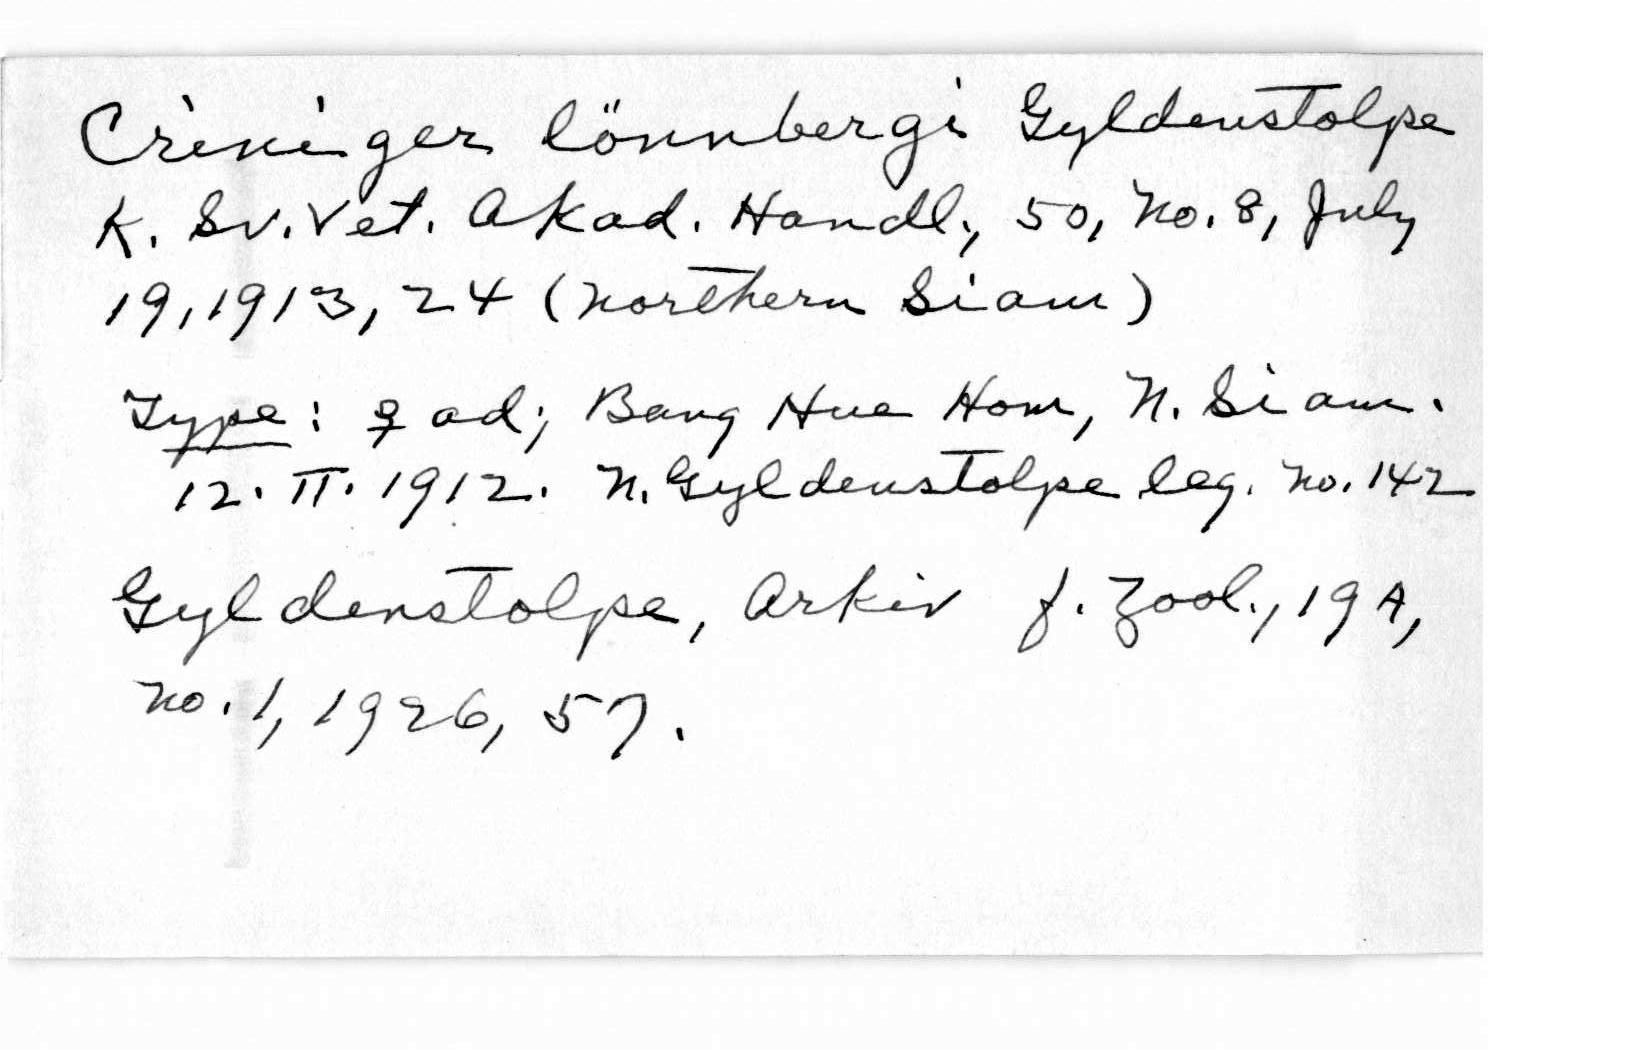 Criniger lönnbergi Gyldenstolpe
K. Sv. Vet. Akad. Handl., 50, no. 8, July
19, 1913, 24 (northern Siam)
Type: ♀ ad; Bang Hue Hom, N. Siam.
12. II. 1912. N. Gyldenstolpe leg. no. 142
Gyldenstolpe, Arkiv f. Zool., 19A,
no. 1, 1926, 57.